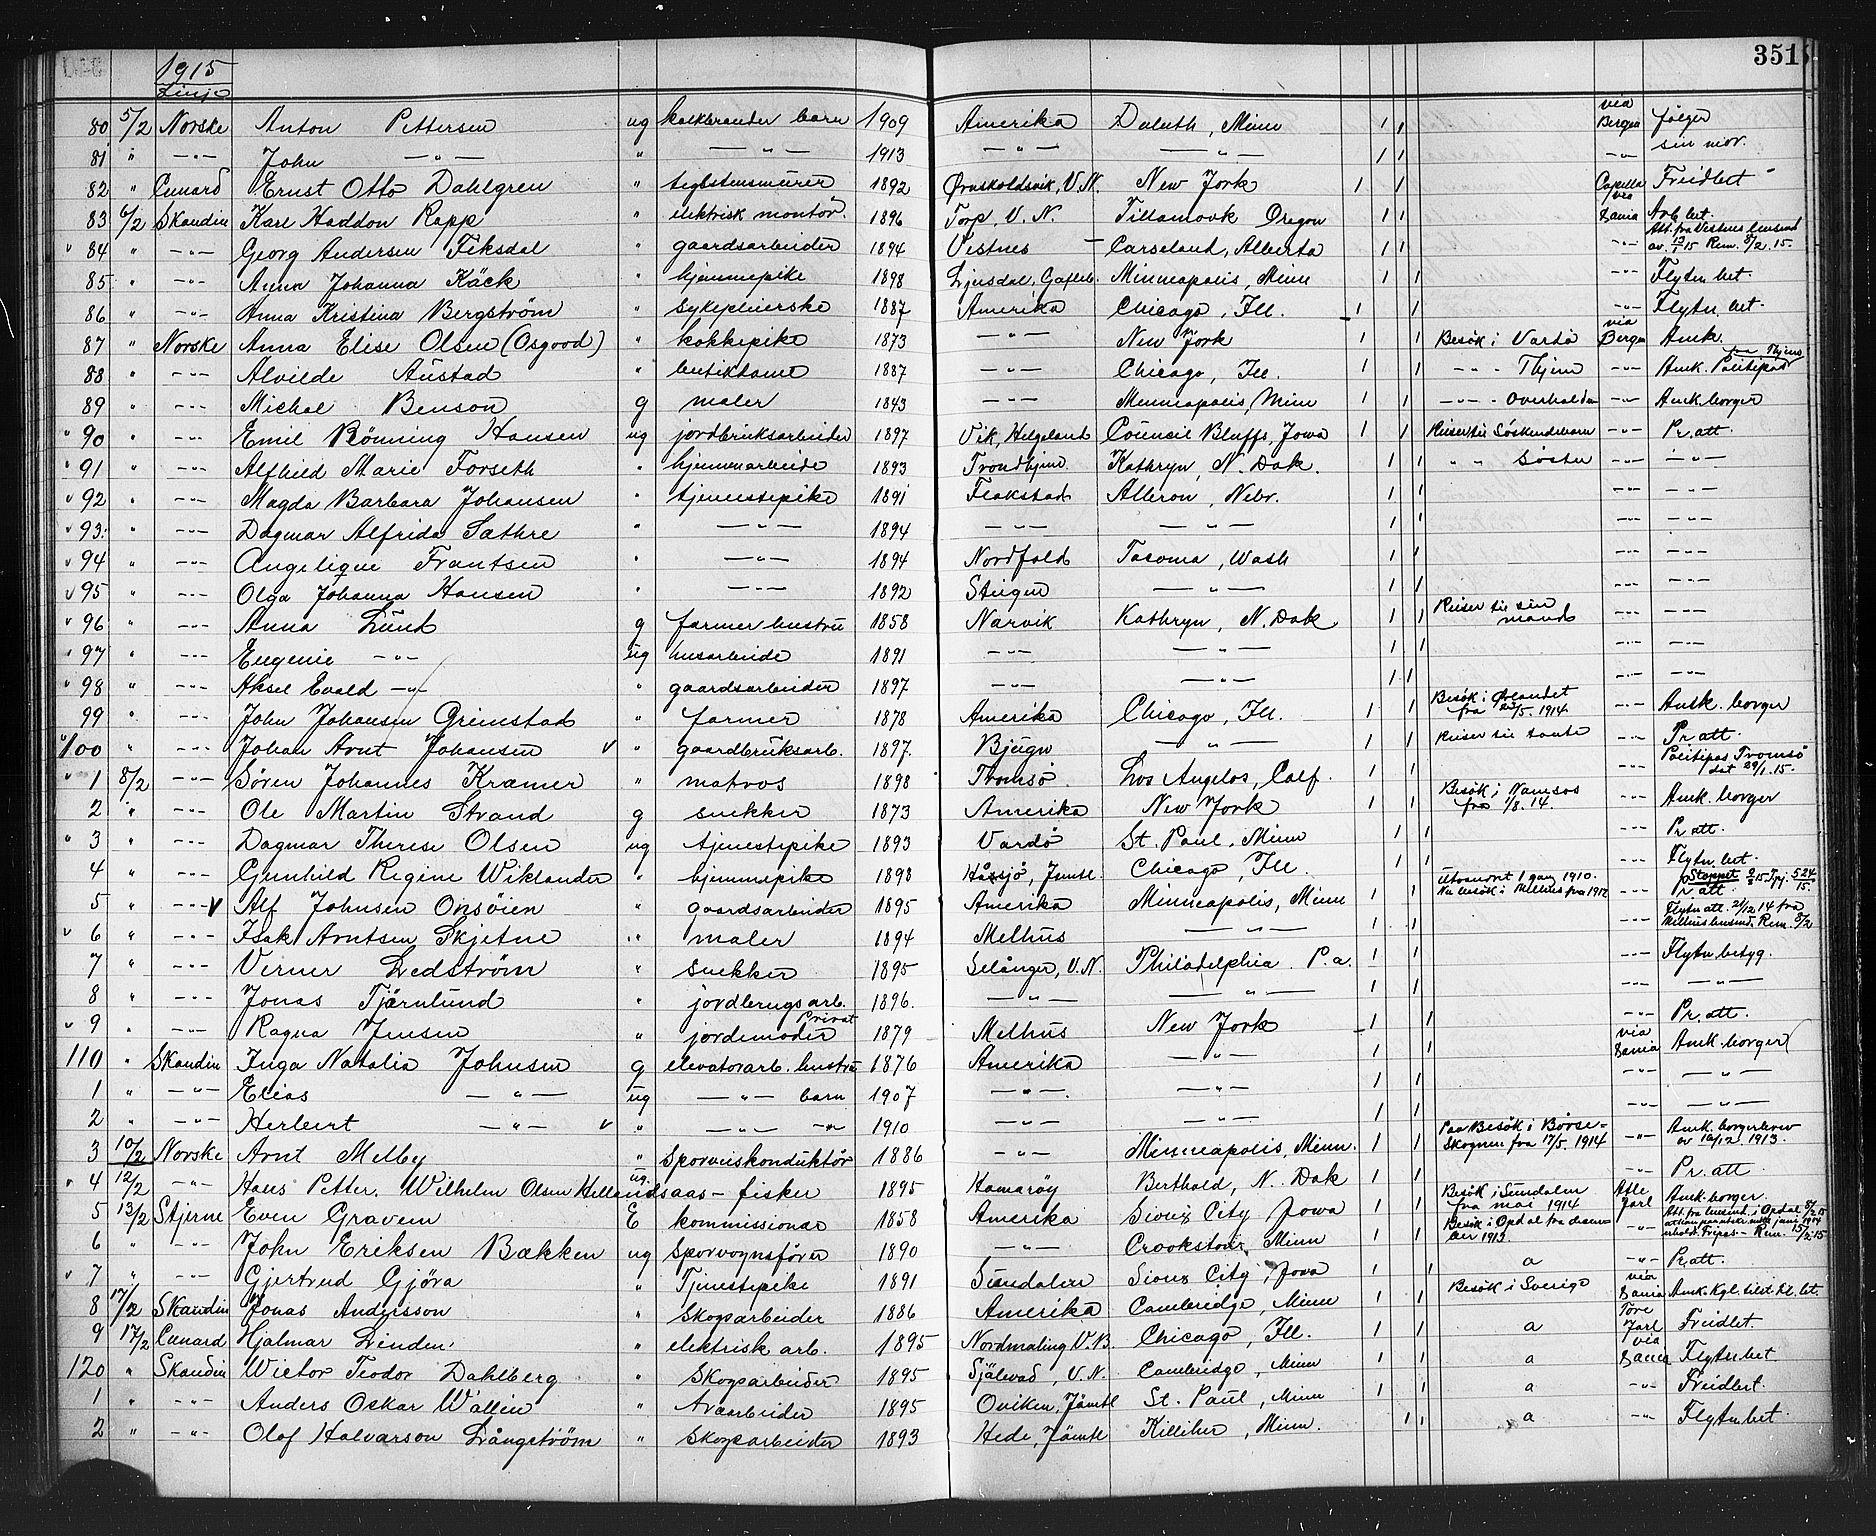 351
1915
Linje
80 5/2 Norske Anton Pettersen ug kalkbrænder barn 1909 Amerika Duluth, Minn 1 1 via Bergen følger
81 " -"- John -"- " -"- 1913 -"- -"- 1 1 -"- sin mor.
82 " Cunard Ernst Otto Dahlgren " teglstensmurer 1892 Ørnskoldsvik, V.N. New York 1 1 Capella Freidbet
83 6/2 Skandin Karl Haddon Rapp " elektrisk montör. 1896 Torp, V. N. Tillamook Oregon 1 1 via Dania Arb. bet.
84 " -"- Georg Andersen Fiksdal " gaardsarbeider 1894 Vestnes Carseland, Alberta 1 1 -"- Att. fra Vestnes lensmd av 12/1 15 Rem. 8/2. 15.
85 " -"- Anna Johanna Käck " hjemmepike 1898 Ljusdal, Gefleb. Minneapolis, Minn 1 1 -"- Flytn. bet.
86 " -"- Anna Kristina Bergström " sykepleierske 1887 Amerika Chicago, Ill. 1 1 -"- Flytn. bet.
87 " Norske Anna Elise Olsen (Osgood) " kokkepike 1873 -"- New York 1 1 Besök i Vardö via Bergen Amk.
88 " -"- Alvilde Austad " butikdame 1887 -"- Chicago, Ill. 1 1 -"- - Thjem -"- Amk. Politipas fra Thjem
89 " -"- Michal Benson g maler 1843 -"- Minneapolis, Minn 1 1 -"- - Overhalden -"- Amk. borger
90 " -"- Emil Rönning Hansen ug jordbruksarbeider 1897 Vik, Helgeland Council Bluffs, Iowa 1 1 Reiser til Söskendebarn -"- Pr. att.
91 " -"- Alfhild Marie Forseth " hjemmearbeide 1893 Trondhjem Kathryn, N. Dak. 1 1 " " Söster -"- -"-
92 " -"- Magda Barbara Johansen " tjenestepike 1891 Flakstad Albion, Nebr. 1 1 -"- -"-
93 " -"- Dagmar Alfrida Sæthre " -"- 1894 -"- -"- 1 1 -"- -"-
94 " -"- Angelique Frantsen " -"- 1894 Nordfold Tacoma, Wash 1 1 -"- -"-
95 " -"- Olga Johanna Hansen " -"- 1892 Steigen -"- 1 1 -"- -"-
96 " -"- Anna Lund g farmer hustru 1858 Narvik Kathryn, N. Dak 1 1 Reiser til sin mand -"- -"-
97 " -"- Eugenie -"- ug husarbeide 1891 -"- -"- 1 1 -"- -"-
98 " -"- Aksel Evald -"- " gaardsarbeider 1897 -"- -"- 1 1 -"- -"-
99 " -"- John Johansen Grimstad " farmer 1878 Amerika Chicago, Ill. 1 1 Besök i Ørlandet fra 23/5. 1914 -"- Amk. borger
100 " -"- Johan Arnt Johansen v " gaardbruksarb. 1897. Bjugn -"- 1 1 Reiser til tante -"- Pr. att.
1 8/2 -"- Sören Johannes Kræmer " matros 1898 Tromsö Los Angelos, Calf. 1 1 -"- Politipas Tromsö dat 29/1. 15.
2 " -"- Ole Martin Strand g snekker 1873 Amerika New York 1 1 Besök i Namsos fra 1/8. 14. -"- Amk. borger
3 " -"- Dagmar Therese Olsen ug tjenestepike 1893 Vardö St. Paul, Minn 1 1 -"- Pr. att.
4 " -"- Gunhild Regine Wiklander " hjemmepike 1898 Håsjö, Jemtl. Chicago, Ill. 1 1 Flytn. bet.
5 " -"- v Alf Johnsen Onsöien " gaardsarbeider 1895 Amerika Minneapolis, Minn 1 1 Utvandret 1 gang 1910. Nu besök i Melhus fra 1912 -"- Pr. att. Stoppet
6 " -"- Isak Arntsen Skjetne " maler 1894 Melhus -"- 1 1 -"- Flytn att. 21/12 14 fra Melhus lensmd. Rem. 8/2
7 " -"- Verner Ledström " snekker 1895 Selånger, V.N. Philadelphia P.a. 1 1 -"- Flytn. betyg.
8 " -"- Jonas Tjärnlund " jordbrugsarb. 1896. -"- -"- 1 1 -"- -"-
9 " -"- Ragna Jensen " Privat jordemoder 1879 Melhus New York 1 1 -"- Pr. att.
110 " Skandin Inga Natalia Johnsen g elevatorarb. hustru 1876 Amerika -"- 1 1 via Dania Amk. borger
1 " -"- Elias -"- ug -"- barn 1907 -"- -"- 1 1 -"- -"-
2 " -"- Herbert -"- v " -"- -"- 1910 -"- -"- 1 1 -"- -"-
3 10/2 Norske Arnt Melby " Sporveiskonduktör 1886 -"- Minneapolis, Minn. 1 1 Paa Besök i Börse-Skognen fra 17/5. 1914 -"- Amk. borgerbrev av 16/12 1913.
4 12/2 -"- Hans Petter Wilhelm Olsen Hellandsaas ug. fisker 1895 Hamaröy Berthold, N. Dak 1 1 -"- Pr. att
5 13/2 Stjerne Even Gravem E kommissionær 1858 Amerika Sioux City Iowa 1 1 Besök i Sundalen fra mai 1914 Atle Jarl Amk. borger.
6 " -"- John Eriksen Bækken ug Sporvognsförer 1890 -"- Crookston, Minn 1 1 Besök i Opdal fra desember 1913. -"- Att. fra lensmd. i Opdal
7 " -"- Gjertrud Gjöra " Tjenestepike 1891 Sundalen Sioux City, Iowa 1 1 a -"- Pr. att.
8 17/2 Skandin Jonas Andersson " Skogsarbeider 1886 Amerika Cambridge, Minn 1 1 Besök i Sverige via Dania
9 17/2 Cunard Hjalmar Linden " elektrisk arb. 1895 Nordmaling V.B. Chicago, Ill. 1 1 a Tore Jarl Freidbet.
120 " Skandin Victor Teodor Dahlberg " Skogsarbeider 1895 Själevad, V.N. Cambridge, Minn 1 1 a via Dania Flytn bet
1 " -"- Anders Oskar Wallin " Træarbeider 1895 Oviken, Jämtl St. Paul, Minn 1 1 a -"- Freidbet.
2 " -"- Olof Halvarson Långström " Skogsarbeider 1893 Hede, Jämtl Killiher, Minn. 1 1 a -"- Flytn bet.